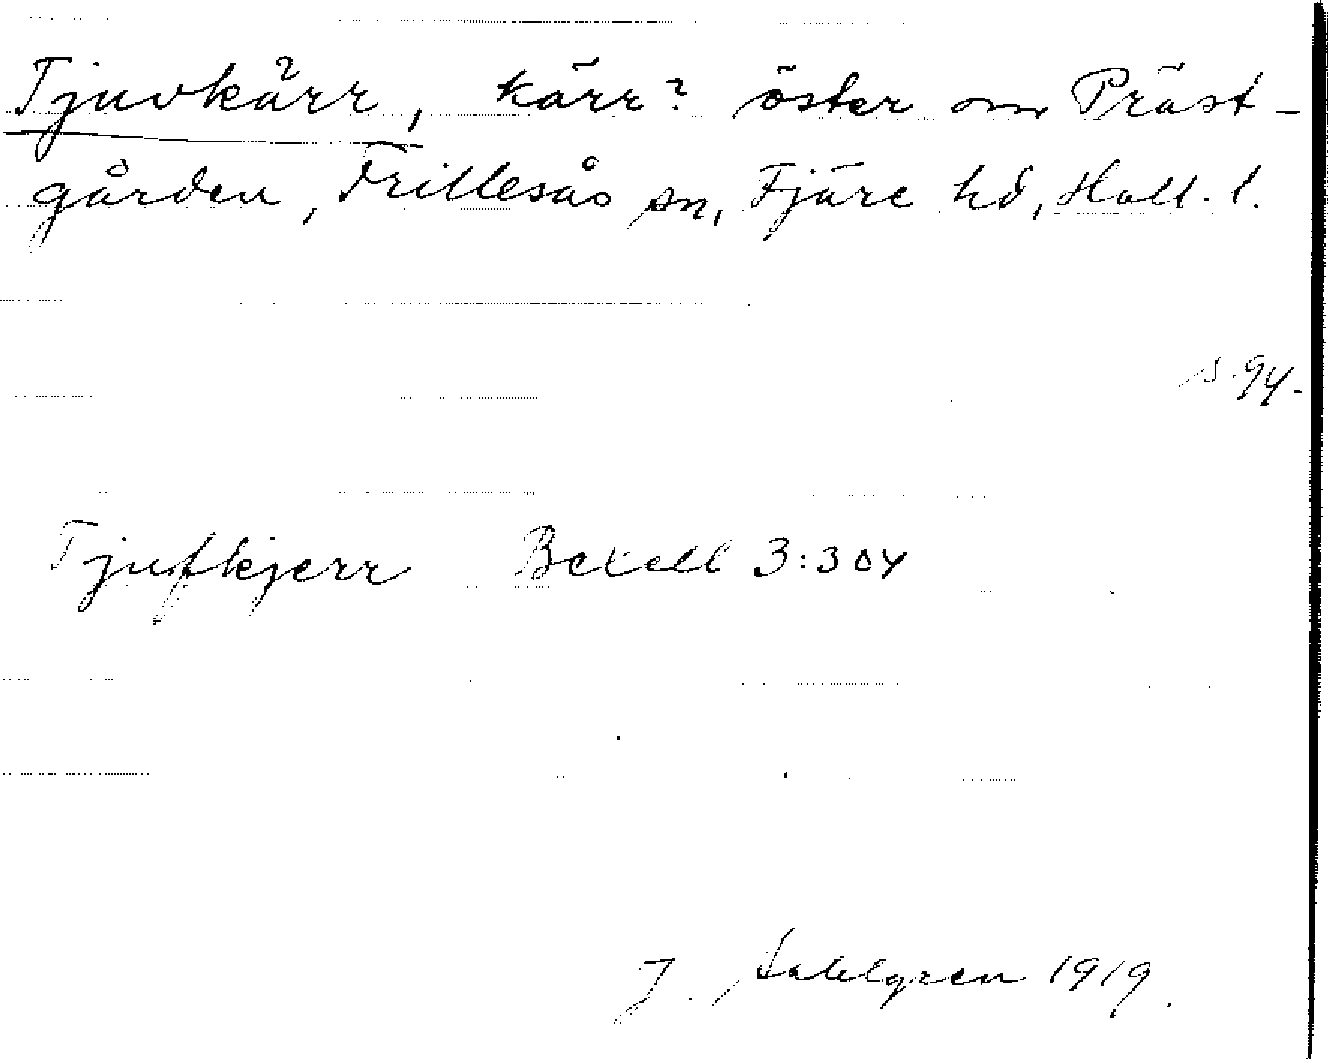 Tjuvkärr, kärr? öster om Präst-
gården, Frillesås sn, Fjäre hd, Hall. l.
s. 94.
Tjufkjerr Bexell 3:304
J. Sahlgren 1919.